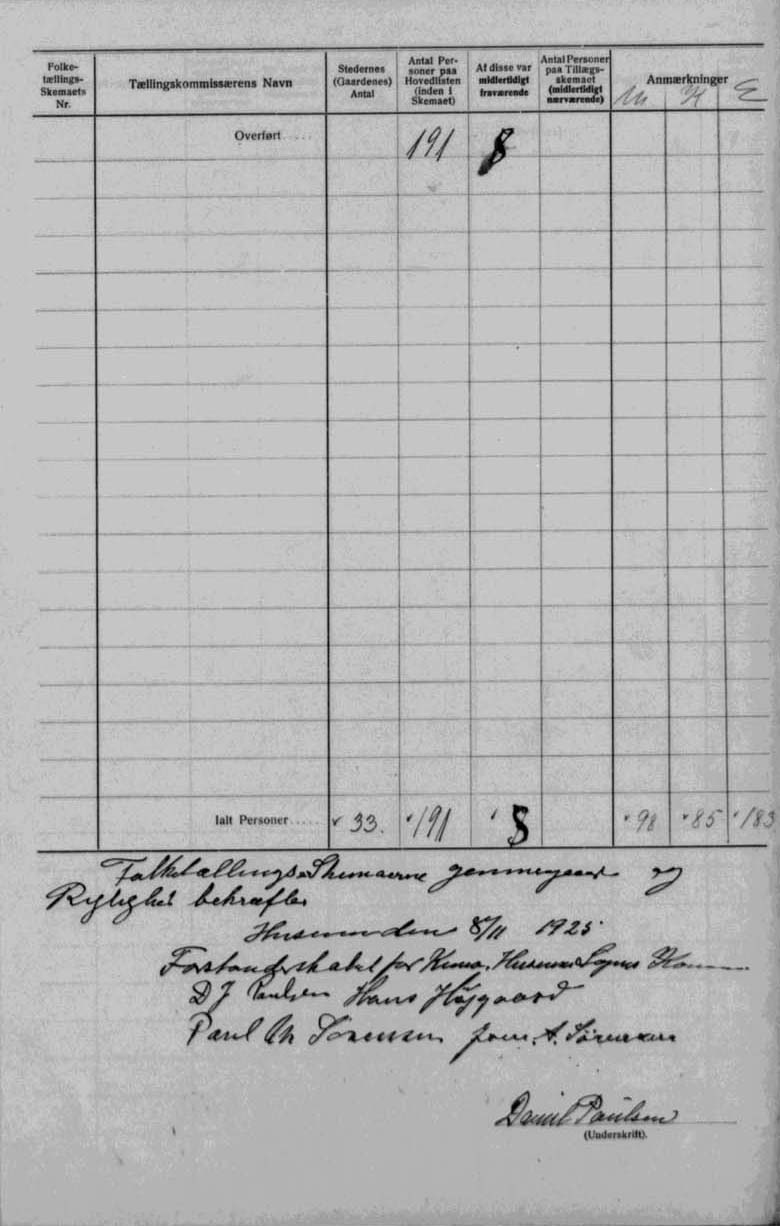 Folke-
tællings-
Skemaets
Nr.
Tællingskommissærens Navn
Stedernes
(Gaardenes)
Antal
Antal Per-
soner paa
Hovedlisten
(inden i
Skemaet)
Af disse var
midlertidigt
fraværende
Antal Personer
paa Tillægs-
skemaet
(midlertidigt
nærværende)
Anmærkninger
M K E
Overført..... 191 8
Ialt Personer..... 33. 191 8 98 85 183
Folketællings Skemaerne gennemgaaet og
Rigtighed bekræftes
Husum den 8/11 1925
Forstanderskabet for Husum Sogns
D J Paulsen Hans Højgaard
Poul M Sørensen A. Sørensen
Daniel Paulsen
(Underskrift).